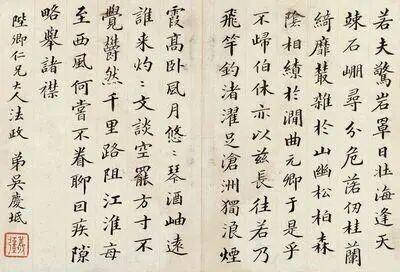 若夫驚岩罩日壯海逢天
竦石崩尋分危落仞桂蘭
綺靡叢雜於山幽松柏森
陰相繚於澗曲元卿于是乎
不歸伯休亦以茲長往若乃
飛竿釣渚濯足滄洲獨浪煙
霞高臥風月悠〻琴酒岫遠
誰来灼〻文談空罷方寸不
覺鬱然千里路阻江淮每
至西風何嘗不眷聊因疾隙
略舉諸襟
陛卿仁兄大人法政 弟吳慶坻